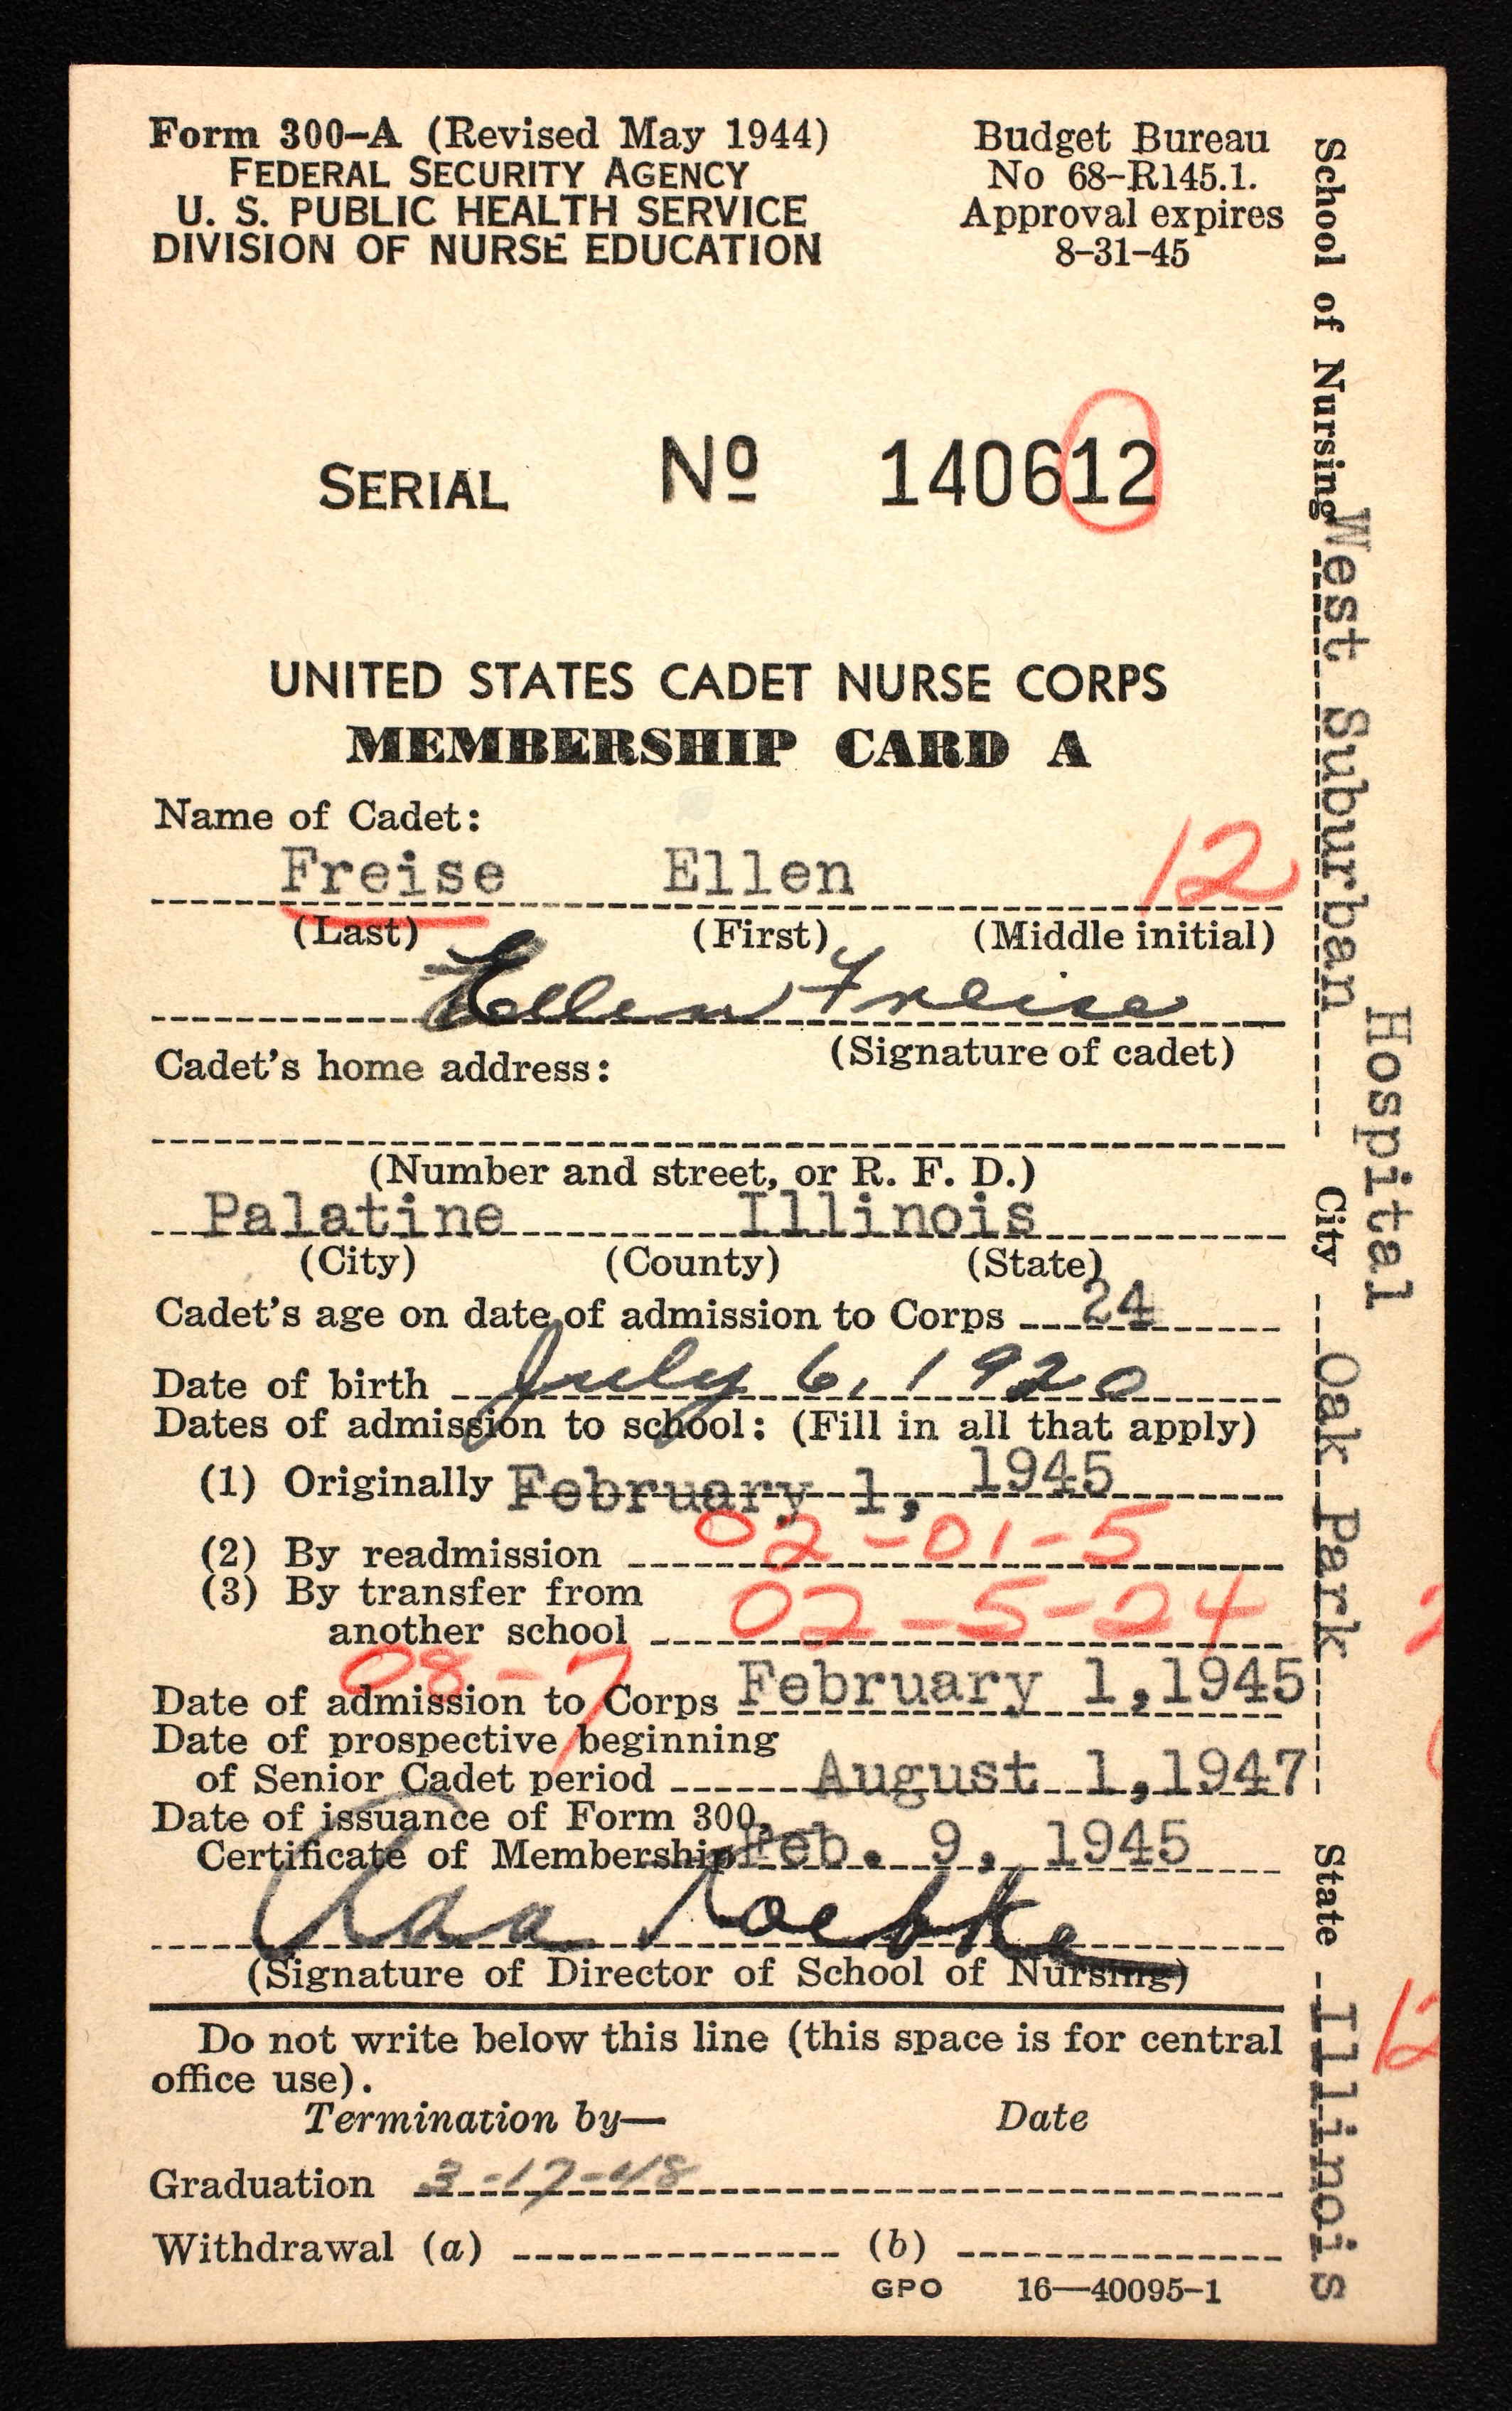 Form 300-A (Revised May 1944)
FEDERAL SECURITY AGENCY
U. S. PUBLIC HEALTH SERVICE
DIVISION OF NURSE EDUCATION
Budget Bureau
No 68-R145.1.
Approval expires
8-31-45
SERIAL Nº 140612
UNITED STATES CADET NURSE CORPS
MEMBERSHIP CARD A
Name of Cadet:
Freise Ellen 12
(Last) (First) (Middle initial)
Ellen Freise
(Signature of cadet)
Cadet's home address:
(Number and street, or R. F. D.)
Palatine Illinois
(City) (County) (State)
Cadet's age on date of admission to Corps 24
Date of birth July 6, 1920
Dates of admission to school: (Fill in all that apply)
(1) Originally February 1, 1945
02-01-5
(2) By readmission
(3) By transfer from
another school 02-5-24
08-7
Date of admission to Corps February 1, 1945
Date of prospective beginning
of Senior Cadet period August 1, 1947
Date of issuance of Form 300,
Certificate of Membership Feb. 9, 1945
(Signature of Director of School of Nursing)
Do not write below this line (this space is for central
office use).
Termination by— Date
Graduation 3-17-48
Withdrawal (a) (b)
GPO 16—40095-1
School of Nursing West Suburban Hospital City Oak Park State Illinois
12